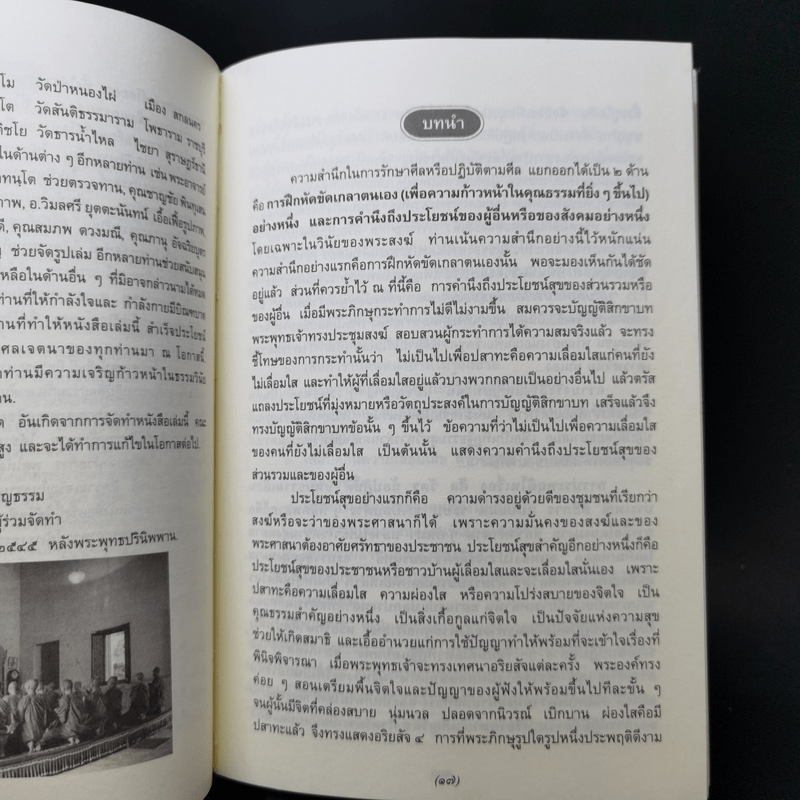 โม วัดป่าหนองไผ่ เมือง สกลนคร
โต วัดสันติธรรมาราม โพธาราม ราชบุรี
วัดธารน้ำไหล ไชยา สุราษฎร์ธานี
ในด้านต่าง ๆ อีกหลายท่าน เช่น พระอาจารย์
ทนฺโต ช่วยตรวจทาน, คุณชาญชัย พินทุเสน
ภาพ, อ.วิมลศรี ยุตตะนันทน์ เอื้อเฟื้อรูปภาพ,
ดี, คุณสมภพ ดวงมณี, คุณภานุ อัจฉริยบุตร
ช่วยจัดรูปเล่ม อีกหลายท่านช่วยสนับสนุน
หลือในด้านอื่น ๆ ที่มิอาจกล่าวนามได้หมด
ท่านที่ให้กำลังใจและ กำลังกายมีบิณฑบาต
านที่ทำให้หนังสือเล่มนี้ สำเร็จประโยชน์
ศลเจตนาของทุกท่านมา ณ โอกาสนี้.
ท่านมีความเจริญก้าวหน้าในธรรมวินัย
าน.
ด อันเกิดจากการจัดทำหนังสือเล่มนี้ คณะ
สูง และจะได้ทำการแก้ไขในโอกาสต่อไป.
ญธรรม
ผู้ร่วมจัดทำ
๒๕๔๕ หลังพระพุทธปรินิพพาน.
บทนำ
ความสำนึกในการรักษาศีลหรือปฏิบัติตามศีล แยกออกได้เป็น ๒ ด้าน
คือ การฝึกหัดขัดเกลาตนเอง (เพื่อความก้าวหน้าในคุณธรรมที่ยิ่ง ๆ ขึ้นไป)
อย่างหนึ่ง และการคำนึงถึงประโยชน์ของผู้อื่นหรือของสังคมอย่างหนึ่ง
โดยเฉพาะในวินัยของพระสงฆ์ ท่านเน้นความสำนึกอย่างนี้ไว้หนักแน่น
ความสำนึกอย่างแรกคือการฝึกหัดขัดเกลาตนเองนั้น พอจะมองเห็นกันได้ชัด
อยู่แล้ว ส่วนที่ควรย้ำไว้ ณ ที่นี้คือ การคำนึงถึงประโยชน์สุขของส่วนรวมหรือ
ของผู้อื่น เมื่อมีพระภิกษุกระทำการไม่ดีไม่งามขึ้น สมควรจะบัญญัติสิกขาบท
พระพุทธเจ้าทรงประชุมสงฆ์ สอบสวนผู้กระทำการได้ความสมจริงแล้ว จะทรง
ชี้โทษของการกระทำนั้นว่า ไม่เป็นไปเพื่อปสาทะคือความเลื่อมใสแก่คนที่ยัง
ไม่เลื่อมใส และทำให้ผู้ที่เลื่อมใสอยู่แล้วบางพวกกลายเป็นอย่างอื่นไป แล้วตรัส
แถลงประโยชน์ที่มุ่งหมายหรือวัตถุประสงค์ในการบัญญัติสิกขาบท เสร็จแล้วจึง
ทรงบัญญัติสิกขาบทข้อนั้น ๆ ขึ้นไว้ ข้อความที่ว่าไม่เป็นไปเพื่อความเลื่อมใส
ของคนที่ยังไม่เลื่อมใส เป็นต้นนั้น แสดงความคำนึงถึงประโยชน์สุขของ
ส่วนรวมและของผู้อื่น
ประโยชน์สุขอย่างแรกก็คือ ความดำรงอยู่ด้วยดีของชุมชนที่เรียกว่า
สงฆ์หรือจะว่าของพระศาสนาก็ได้ เพราะความมั่นคงของสงฆ์และของ
พระศาสนาต้องอาศัยศรัทธาของประชาชน ประโยชน์สุขสำคัญอีกอย่างหนึ่งก็คือ
ประโยชน์สุขของประชาชนหรือชาวบ้านผู้เลื่อมใสและจะเลื่อมใสนั่นเอง เพราะ
ปสาทะคือความเลื่อมใส ความผ่องใส หรือความโปร่งสบายของจิตใจ เป็น
คุณธรรมสำคัญอย่างหนึ่ง เป็นสิ่งเกื้อกูลแก่จิตใจ เป็นปัจจัยแห่งความสุข
ช่วยให้เกิดสมาธิ และเอื้ออำนวยแก่การใช้ปัญญาทำให้พร้อมที่จะเข้าใจเรื่องที่
พินิจพิจารณา เมื่อพระพุทธเจ้าจะทรงเทศนาอริยสัจแต่ละครั้ง พระองค์ทรง
ค่อย ๆ สอนเตรียมพื้นจิตใจและปัญญาของผู้ฟังให้พร้อมขึ้นไปทีละขั้น ๆ
จนผู้นั้นมีจิตที่คล่องสบาย นุ่มนวล ปลอดจากนิวรณ์ เบิกบาน ผ่องใสคือมี
ปสาทะแล้ว จึงทรงแสดงอริยสัจ ๔ การที่พระภิกษุรูปใดรูปหนึ่งประพฤติดีงาม
(๑๗)